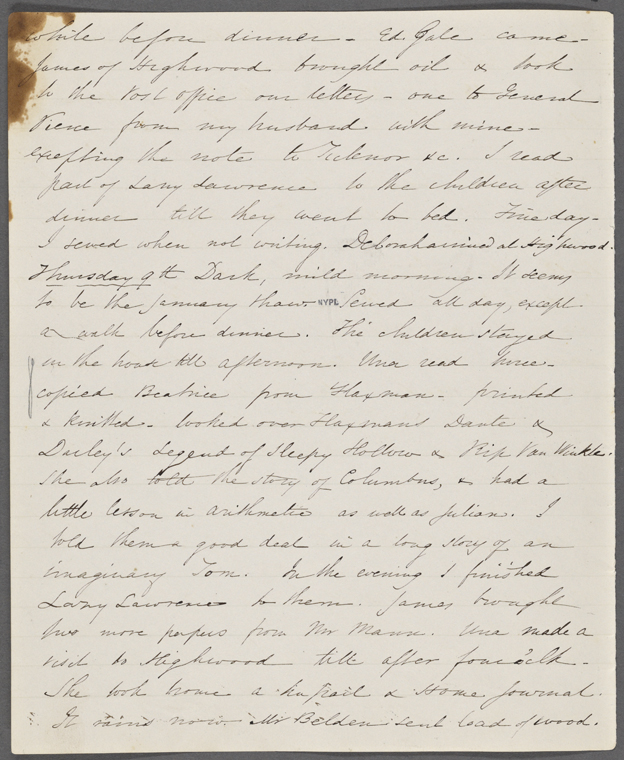 while before dinner - Ed. Gale came -
James of Highwood brought oil & took
to the Post office our letters - one to General
Pierce from my husband with mine -
excepting the note to Ticknor &c. I read
part of Lazy Lawrence to the children after
dinner till they went to bed. Fine day -
I sewed when not writing. Deborah dined at Highwood.
Thursday 9th Dark, mild morning. It seems
to be the January thaw. Sewed all day, except
NYPL
a walk before dinner. The children stayed
in the house till afternoon. Una read
copied Beatrice from Flaxman - printed
& knitted - looked over Flaxman's Dante &
Darley's Legend of Sleepy Hollow & Rip Van Winkle.
She also told the story of Columbus, & had a
little lesson in arithmetic as well as Julian. I
told them a good deal in a long story of an
imaginary Tom. In the evening I finished
Lazy Lawrence to them. James brought
two more papers from Mr Mann. Una made a
visit to Highwood till after four oclk -
She took home a & Home Journal.
It rains now. Mr Belden sent load of wood.